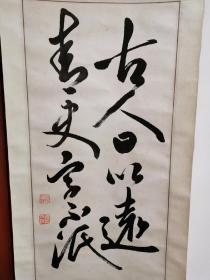 古人日以遠
青史字不泯